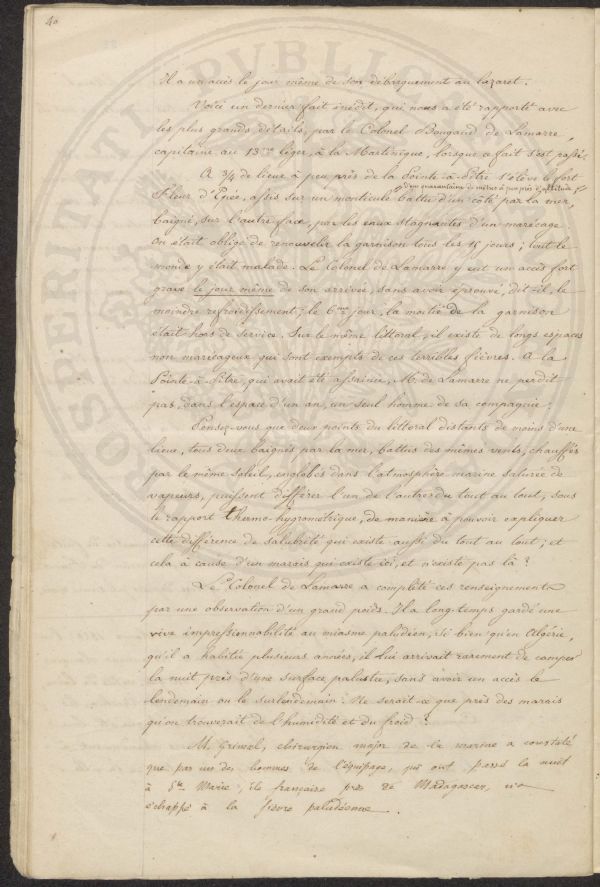 40
Il a un accès le jour même de son débarquement au lazaret.
Voici un dernier fait inédit, qui nous a été rapporté avec
les plus grands détails, par le Colonel Bougaud de Lamarre,
capitaine au 13me léger, à la Martinique, lorsque ce fait s'est passé.
A 3/4 de lieue à peu près de la Pointe-à-Pitre s'élève le fort
d'une quarantaine de mètres à peu près d'altitude
Fleur d'Epée, assis sur un monticule battu d'un côté par la mer,
baigné, sur l'autre face, par les eaux stagnantes d'un marécage.
On était obligé de renouveler la garnison tous les 15 jours; tout le
monde y était malade. Le Colonel de Lamarre y eut un accès fort
grave le jour même de son arrivée, sans avoir éprouvé, dit-il, le
moindre refroidissement; le 6me jour, la moitié de la garnison
était hors de service. Sur le même littoral, il existe de longs espaces
non marécageux qui sont exempts de ces terribles fièvres. A la
Pointe-à-Pitre, qui avait été assainie, M. de Lamarre ne perdit
pas, dans l'espace d'un an, un seul homme de sa compagnie.
Pensez-vous que deux points du littoral distants de moins d'une
lieue, tous deux baignés par la mer, battus des mêmes vents, chauffés
par le même soleil, englobés dans l'atmosphère marine saturée de
vapeurs, puissent différer l'un de l'autre du tout au tout, sous
le rapport thermo-hygrométrique, de manière à pouvoir expliquer
cette différence de salubrité qui existe aussi du tout au tout; et
cela à cause d'un marais qui existe ici, et n'existe pas là?
Le Colonel de Lamarre a complété ces renseignements
par une observation d'un grand poids. Il a long-temps gardé une
vive impressionnabilité au miasme paludéen, si bien qu'en Algérie,
qu'il a habitée plusieurs années, il lui arrivait rarement de camper
la nuit près d'une surface palustre, sans avoir un accès le
lendemain ou le surlendemain. Ne serait-ce que près des marais
qu'on trouverait de l'humidité et du froid?
M. Grivel, chirurgien major de la marine a constaté
que pas un des hommes de l'équipage, qui ont passé la nuit
à Ste Marie, île française près de Madagascar, n'a
échappé à la fièvre paludéenne.
PROSPERITATI PUBLICAE